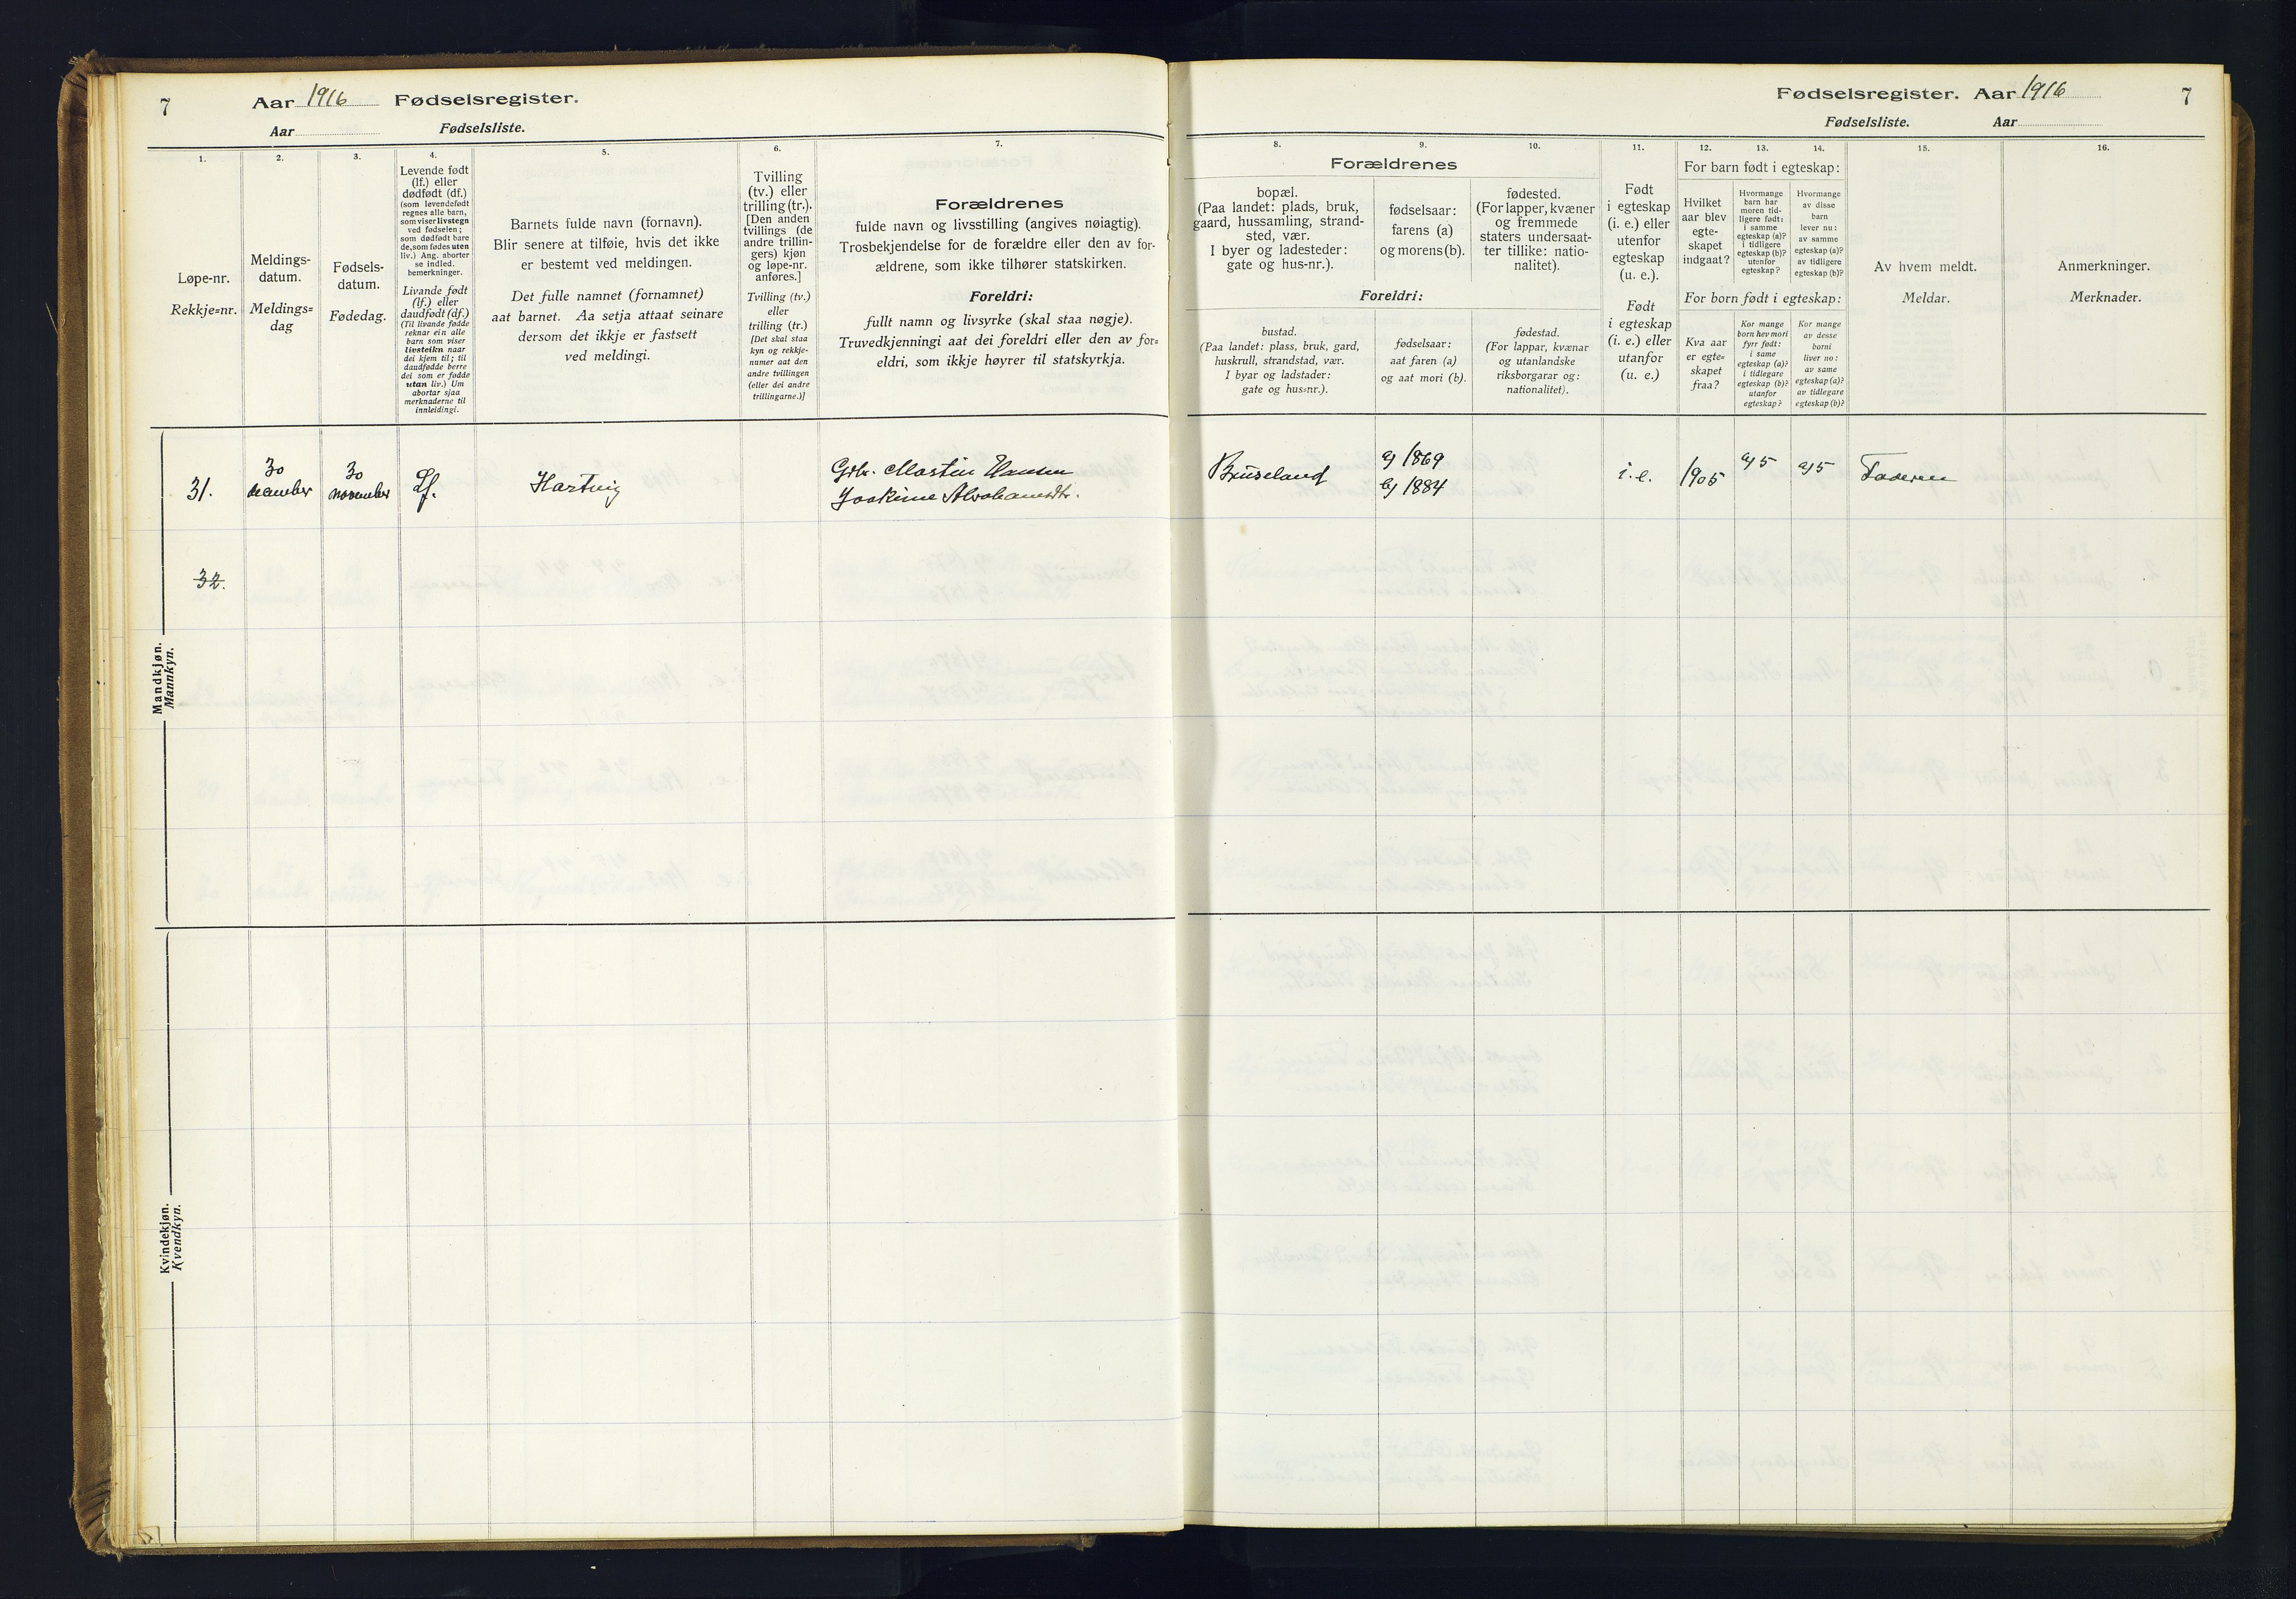 7
Aar 1916 Fødselsregister.
Aar Fødselsliste.
1.
2.
3.
4.
5.
6.
7.
Løpe-nr.
Rekkje=nr.
Meldings-
datum.
Meldings=
dag
Fødsels-
datum.
Fødedag.
Levende født
(lf.) eller
dødfødt (df.)
(som levendefødt
regnes alle barn,
som viser livstegn
ved fødselen;
som dødfødt bare
de, som fødes uten
liv.) Ang. aborter
se indled.
bemerkninger.
Livande født
(lf.) eller
daudfødt (df.)
(Til livande fødde
reknar ein alle
barn som viser
livsteikn naar
dei kjem til; til
daudfødde berre
dei som er fødde
utan liv.) Um
abortar sjaa
merknaderne til
innleidingi.
Barnets fulde navn (fornavn).
Blir senere at tilføie, hvis det ikke
er bestemt ved meldingen.
Det fulle namnet (fornamnet)
aat barnet. Aa setja attaat seinare
dersom det ikkje er fastsett
ved meldingi.
Tvilling
(tv.) eller
trilling (tr.).
[Den anden
tvillings (de
andre trillin-
gers) kjøn
og løpe-nr.
anføres.]
Tvilling (tv.)
eller
trilling (tr.)
[Det skal staa
kyn og rekkje-
nmer aat den
andre tvillingen
(eller dei andre
trillingarne.)]
Forældrenes
fulde navn og livsstilling (angives nøiagtig).
Trosbekjendelse for de forældre eller den av for-
ældrene, som ikke tilhører statskirken.
Foreldri:
fullt namn og livsyrke (skal staa nøgje).
Truvedkjenningi aat dei foreldri eller den av for=
eldri, som ikkje høyrer til statskyrkja.
Mandkjøn.
Mannkyn.
31.
30
desember
30
november
Lf.
Hartvig
Gdbr. Martin Hansen
Joakime Abrahamsdtr.
32.
Kvindekjøn.
Kvendkyn.
Fødselsregister. Aar 1916
7
Fødselsliste. Aar
8.
9.
10.
11.
12.
13.
14.
15.
16.
Forældrenes
bopæl.
(Paa landet: plads, bruk,
gaard, hussamling, strand-
sted, vær.
I byer og ladesteder:
gate og hus-nr.).
fødselsaar:
farens (a)
og morens (b).
fødested.
(For lapper, kvæner
og fremmede
staters undersaat-
ter tillike: natio-
nalitet).
Foreldri:
bustad.
(Paa landet: plass, bruk, gard,
huskrull, strandstad, vær.
I byar og ladstader:
gate og hus=nr.).
fødselsaar:
aat faren (a)
og aat mori (b).
fødestad.
(For lappar, kvænar
og utanlandske
riksborgarar og:
nationalitet).
Født
i egteskap
(i. e.) eller
utenfor
egteskap
(u. e.).
Født
i egteskap
(i. e.) eller
utanfor
(u. e.)
For barn født i egteskap:
Hvilket
aar blev
egte-
skapet
indgaat?
Hvormange
barn har
moren tid-
ligere født:
i samme
egteskap (a)?
i tidligere
egteskap (b)?
utenfor
egteskap?
Hvormange
av disse
barn
lever nu:
av samme
egteskap (a)?
av tidligere
egteskap (b)?
For born født i egteskap:
Kva aar
er egte=
skapet
fraa?
Kor mange
born hev mori
fyrr født:
i same
egteskap (a)?
i tidlegare
egteskap (b)?
utanfor
egteskap?
Kor mange
av desse
borni
liver no:
av same
egteskap (a)?
av tidlegare
egteskap (b)?
Av hvem meldt.
Meldar.
Anmerkninger.
Merknader.
Bruseland
a) 1869
b) 1884
i. e.
1905
a) 5
a) 5
Faderen